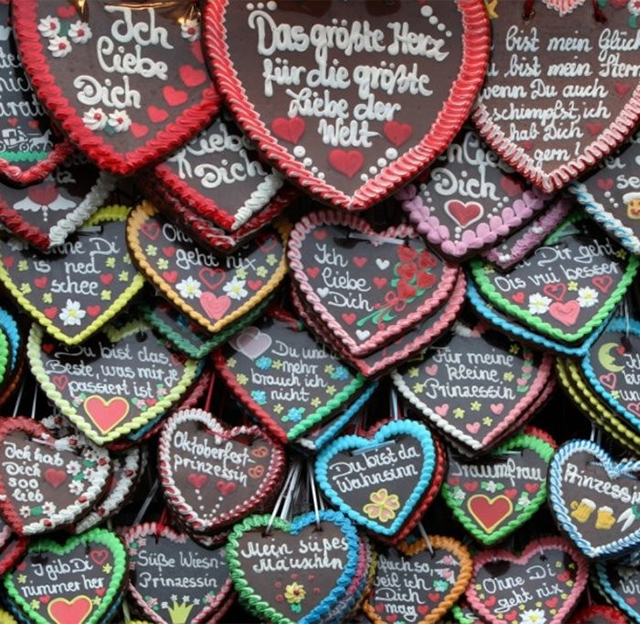 Ich
Liebe
Dich
Das größte Herz
für die größte
Liebe der
Welt
bist mein Glück
bist mein Stern
wenn Du auch
schimpfst, ich
hab Dich
gern!
Liebe
Dich
Dich
Ohne Di
is ned
schee
geht nix
Ich
liebe
Dich
Dir geht
Ois vui besser
Du bist das
Beste, was mir je
passiert ist
Du und
mehr
brauch ich
nicht
Für meine
kleine
Prinzessin
Ich hab
Dich
soo
lieb
Oktoberfest-
prinzessin
Du bist da
Wahnsinn
Traumfrau
Prinzessin
I gib Di
nimmer her
Süße Wiesn-
Prinzessin
Mein süßes
Mäuschen
Einfach so,
weil ich
Dich
mag
Ohne Di
geht nix